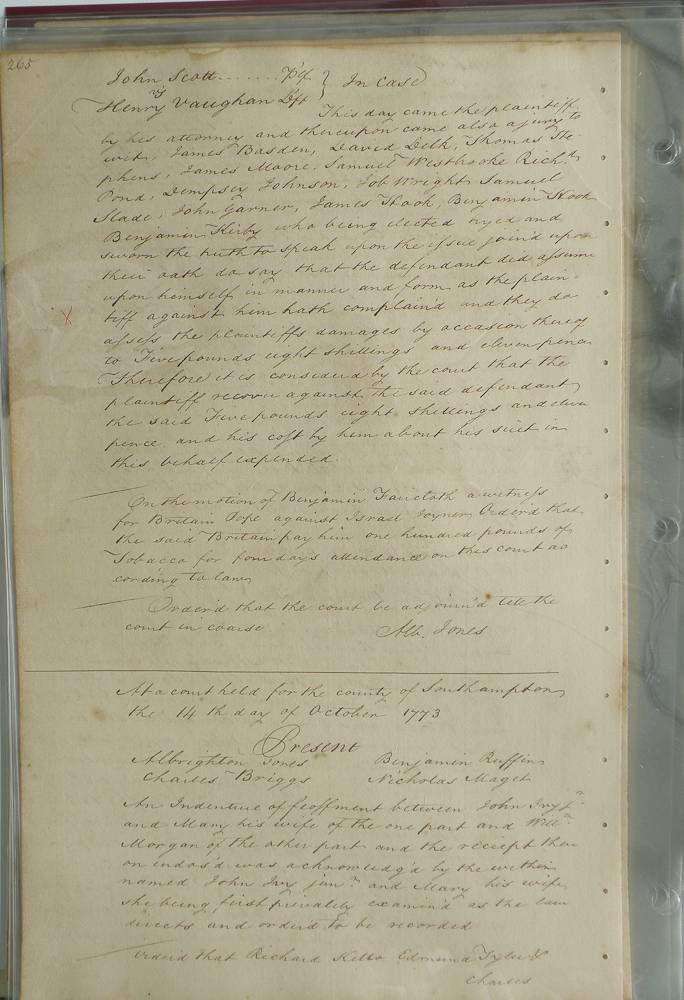 265
John Scott ....... Plf } In Case
vs
Henry Vaughan Dft
This day came the plaintiff
by his attorney and thereupon came also a jury to
wit, James Basden, David Delk, Thomas Ste-
phens, James Moore, Samuel Westbrooke Richd
Pond, Dempsey Johnson, Job Wright, Samuel
Slade, John Garner, James Hook, Benjamin Hook
Benjamin Kirby who being elected tryed and
sworn the truth to speak upon the issue join'd upon
their oath do say that the defendant did assume
upon himself in manner and form as the plain-
tiff against him hath complain'd and they do
assess the plaintiffs damages by accasion thereof
to Five pounds eight shillings and eleven pence
Therefore it is considered by the court that the
plaintiff recover against the said defendant
the said Five pounds eight shillings and eleven
pence and his cost by him about his suit in
this behalf expended.
X
On the motion of Benjamin Faircloth a witness
for Britain Pope against Israel Joyner Order'd that
the said Britain pay him one hundred pounds of
Tobacco for four days attendance on this court ac
cording to law
Order'd that the court be adjourn'd till the
court in coarse
Alb. Jones
At a court held for the county of Southampton
the 14th day of October 1773
Present
Albrighton Jones Benjamin Ruffin
Charles Briggs Nicholas Maget
An Indenture of feoffment between John Ivy jr
and Mary his wife of the one part and Willm
Morgan of the other part and the reciept there
on endos'd was acknowledg'd by the within
named John Ivy junr and Mary his wife
she being first privately examin'd as the law
directs and order'd to be recorded
Order'd that Richard Kello Edmund Tyler &
Charles